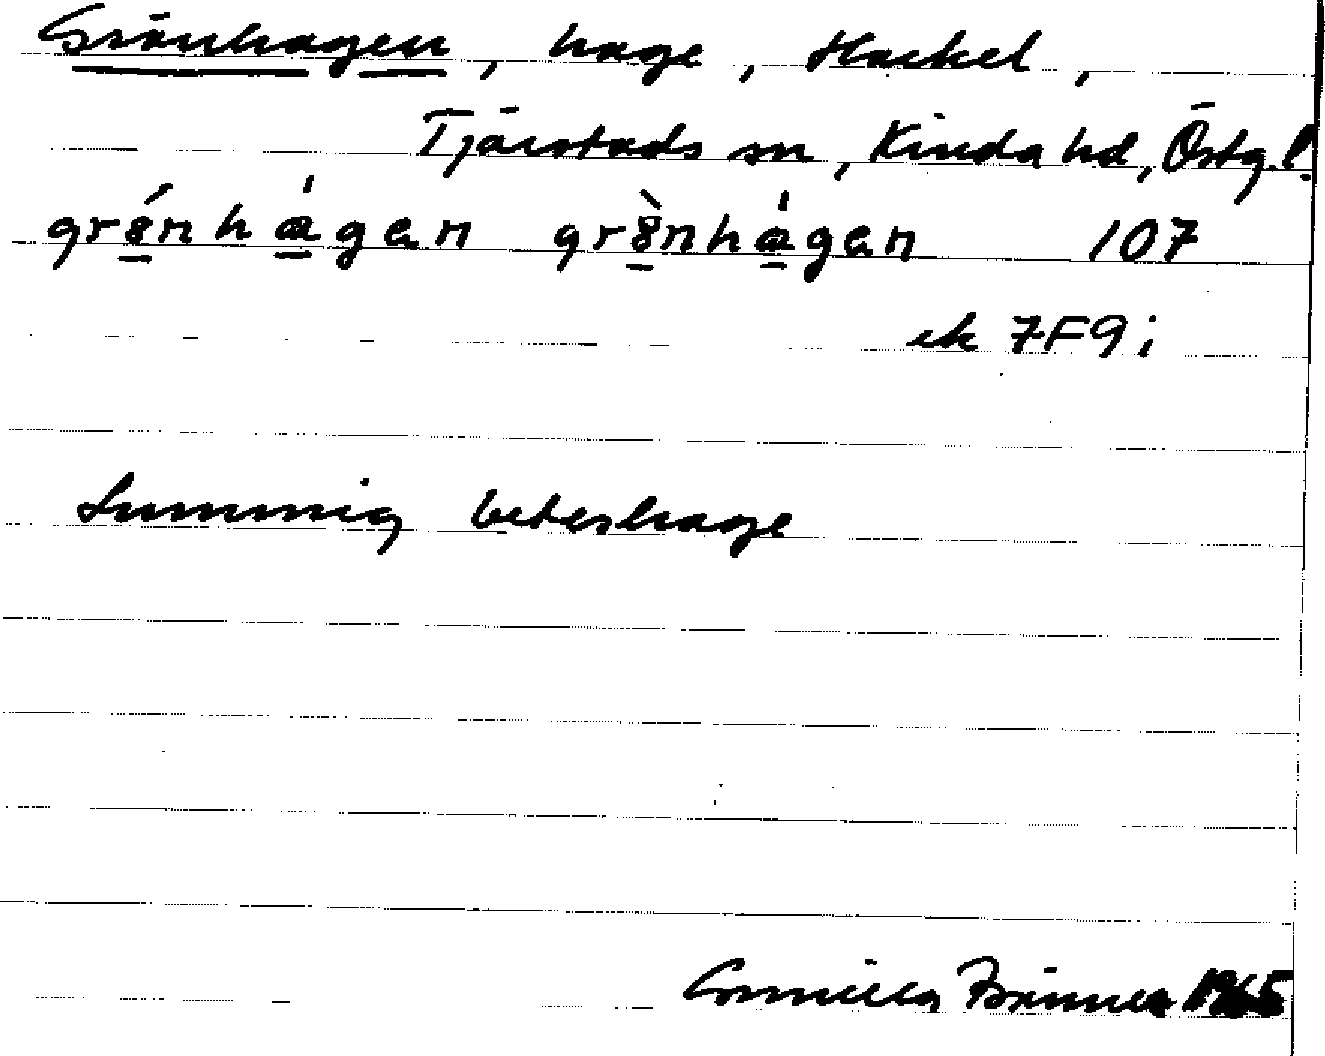 Grönhagen, hage, Hackel,
Tjärstads sn, Kinda hd, Östg.l.
grö́nhágen grö̀nhágen 107
ek 7F9i
Lummig beteshage
Gunilla 1965